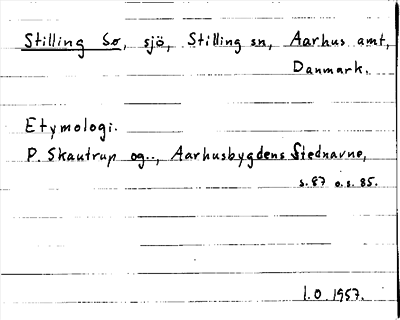 Stilling Sø, sjö, Stilling sn, Aarhus amt,
Danmark.
Etymologi.
P. Skautrup og.., Aarhusbygdens Stednavne,
s.87 o.s. 85.
l.O. 1957.